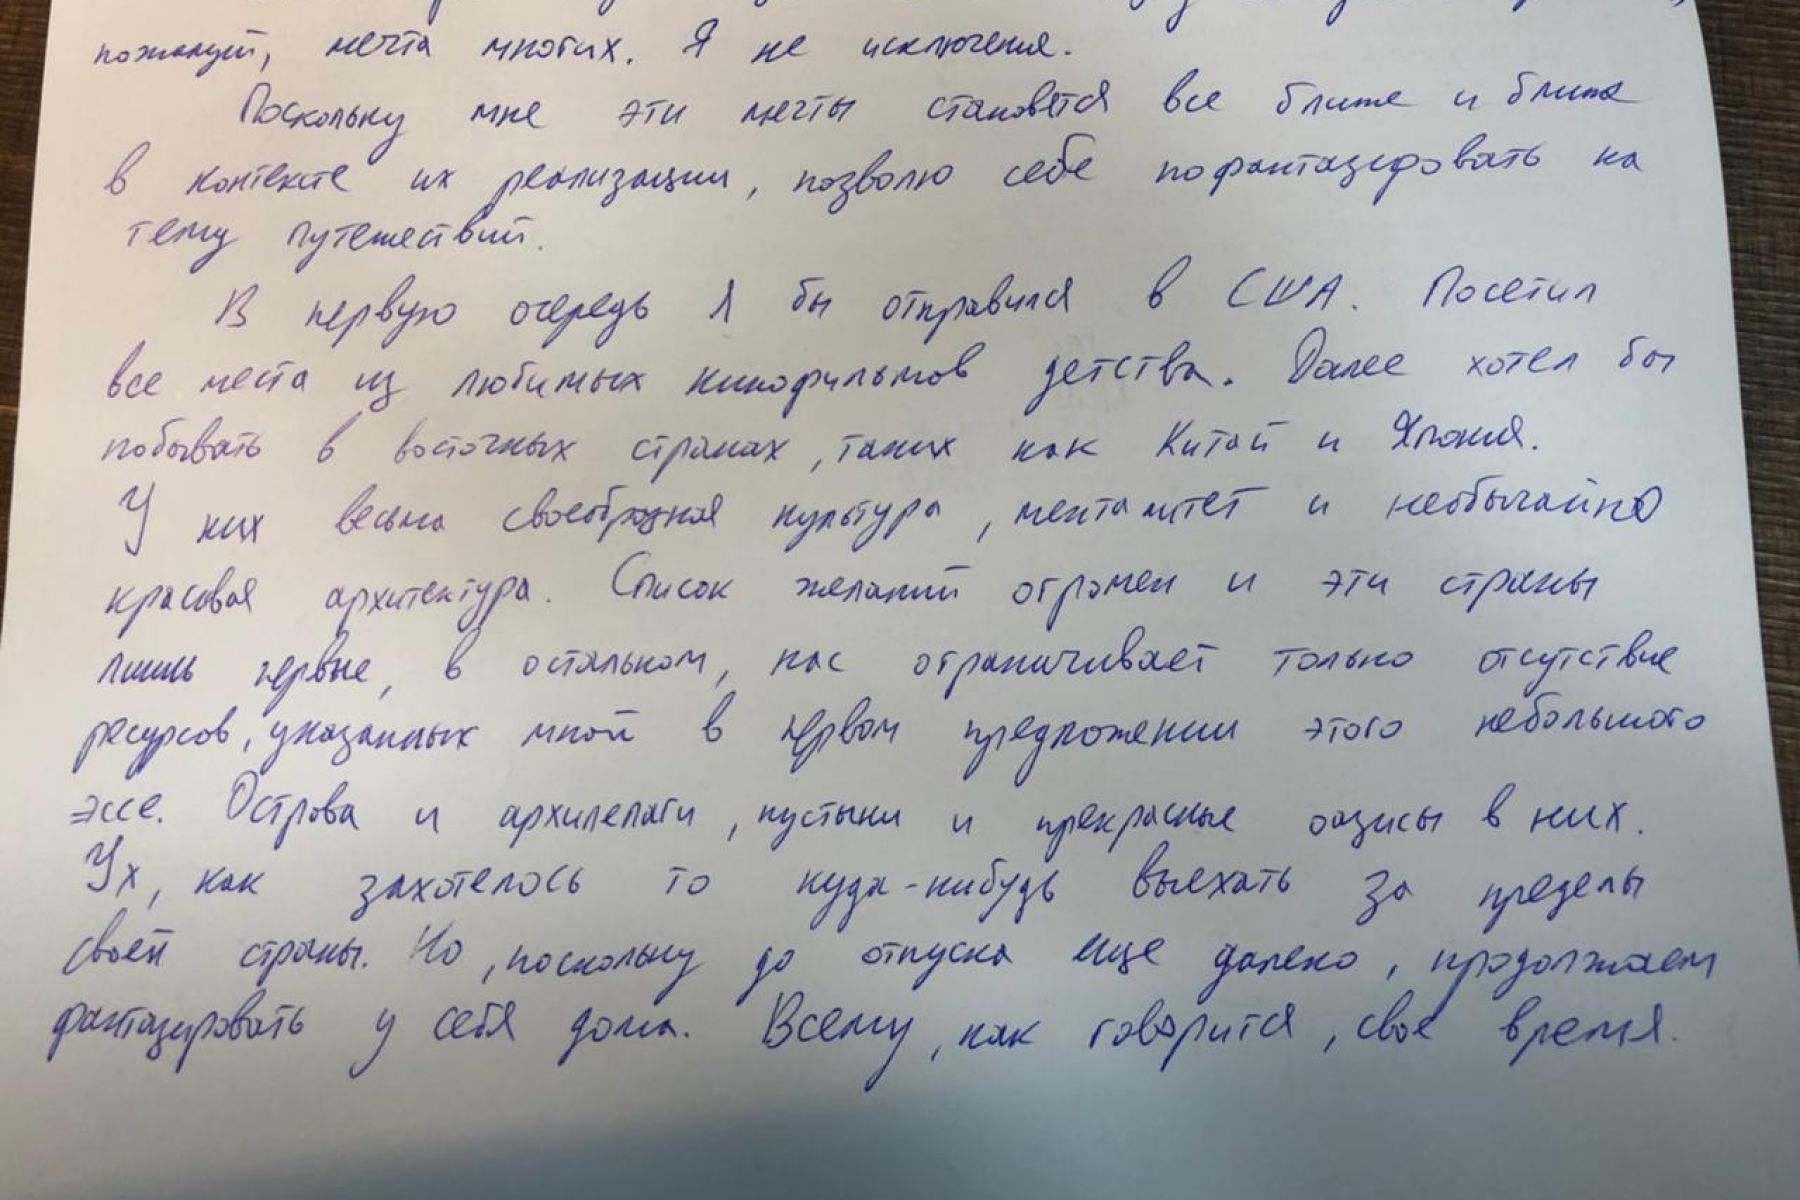 пожалуй, мечта многих. Я не исключения.
Поскольку мне эти мечты становятся все ближе и ближе
в контексте их реализации, позволю себе пофантазировать на
тему путешествий.
В первую очередь я бы отправился в США. Посетил
все места из любимых кинофильмов детства. Далее хотел бы
побывать в восточных странах, таких как Китай и Япония.
У них весьма своеобразная культура, менталитет и необычайно
красивая архитектура. Список желаний огромен и эти страны
лишь первые, в остальном, нас ограничивает только отсутствие
ресурсов, указанных мной в первом предложении этого небольшого
эссе. Острова и архипелаги, пустыни и прекрасные оазисы в них.
Ух, как захотелось то куда-нибудь выехать за пределы
своей страны. Но, поскольку до отпуска еще далеко, продолжаем
фантазировать у себя дома. Всему, как говорится, свое время.